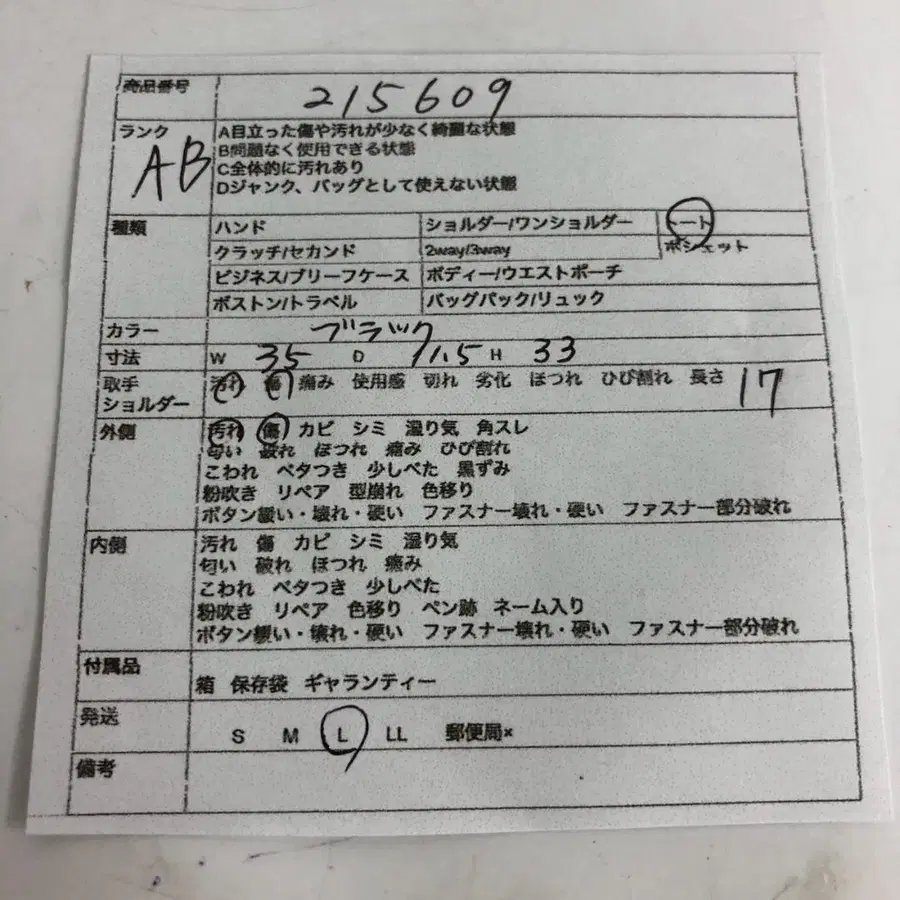 商品番号 215609
ランク AB
A目立った傷や汚れが少なく綺麗な状態
B問題なく使用できる状態
C全体的に汚れあり
Dジャンク、バッグとして使えない状態
種類 ハンド ショルダー/ワンショルダー トート
クラッチ/セカンド 2way/3way ポシェット
ビジネス/ブリーフケース ボディー/ウエストポーチ
ボストン/トラベル バックパック/リュック
カラー ブラック
寸法 W 35 D 11.5 H 33
取手 汚れ 傷 痛み 使用感 切れ 劣化 ほつれ ひび割れ 長さ 17
ショルダー
外側 汚れ 傷 カビ シミ 湿り気 角スレ
匂い 破れ ほつれ 痛み ひび割れ
こわれ ベタつき 少しべた 黒ずみ
粉吹き リペア 型崩れ 色移り
ボタン緩い・壊れ・硬い ファスナー壊れ・硬い ファスナー部分破れ
内側 汚れ 傷 カビ シミ 湿り気
匂い 破れ ほつれ 痛み
こわれ ベタつき 少しべた
粉吹き リペア 色移り ペン跡 ネーム入り
ボタン緩い・壊れ・硬い ファスナー壊れ・硬い ファスナー部分破れ
付属品 箱 保存袋 ギャランティー
発送 S M L LL 郵便局×
備考